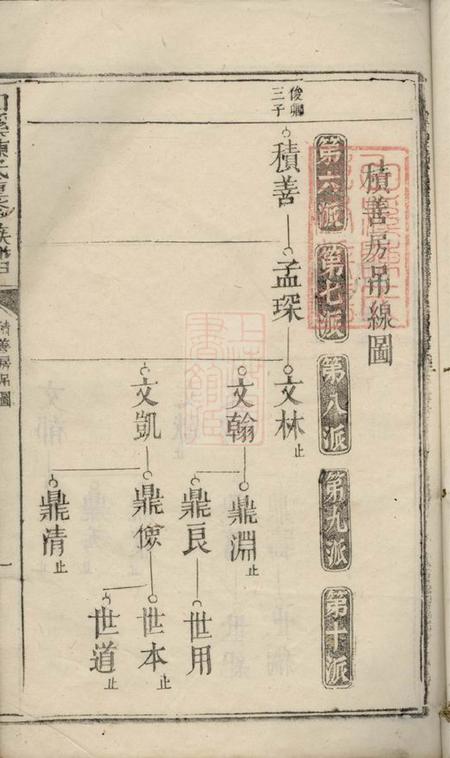 積善房吊線圖
第六派
第七派
第八派
第九派
第十派
俊卿
三子
積善
孟琛
文林止
文翰
文凱
鼎淵止
鼎良
鼎儉
鼎清止
世用
世本止
世道止
積善房吊圖
一